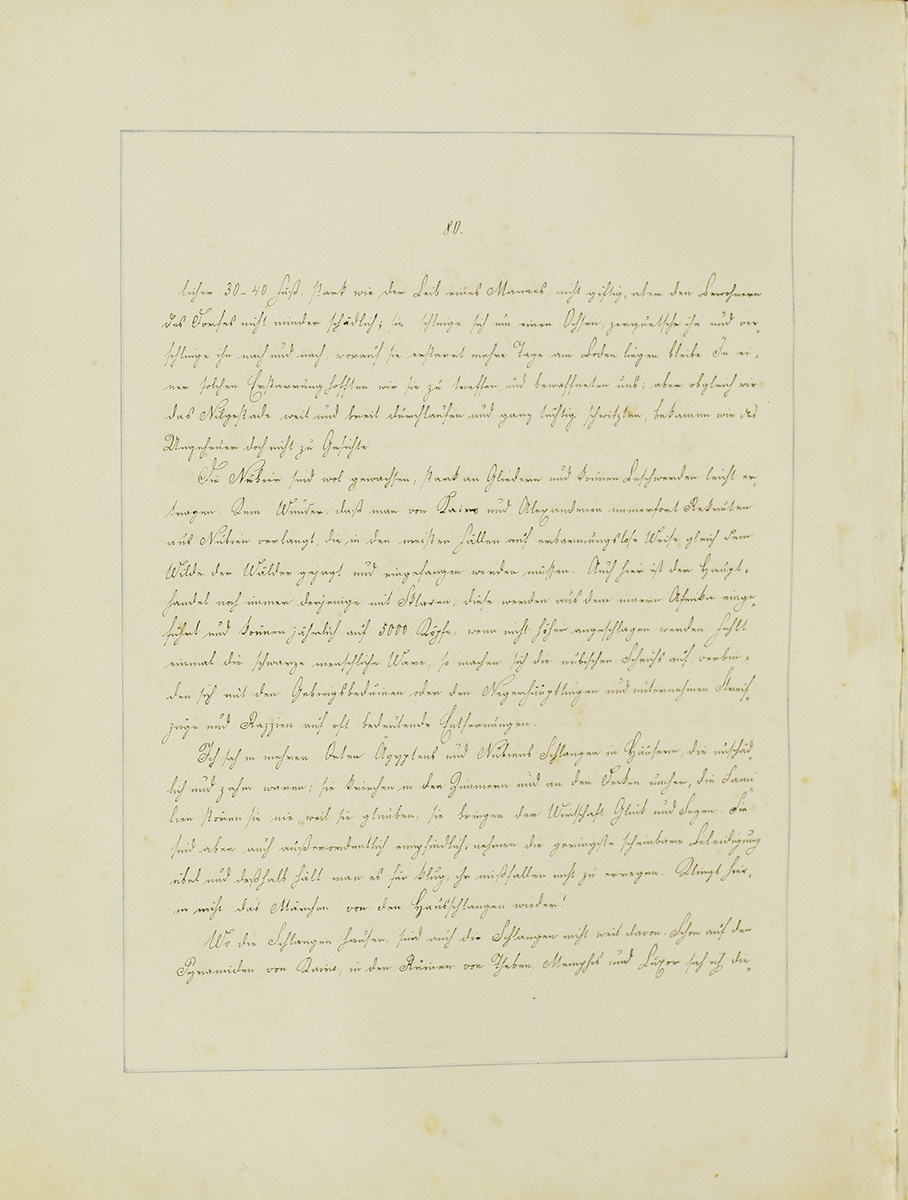 80.
licher 30-40 Fuß, stark wie der Leib eines Mannes, nicht giftig, aber den Bewohnern
des Dorfes nicht minder schädlich; sie schlinge sich um einen Ochsen, zerquetsche ihn und ver-
schlinge ihn nach und nach, worauf sie erstarrt mehre Tage am Boden liegen bleibe. In ei-
ner solchen Erstarrung hofften wir sie zu treffen und bewaffneten uns; aber obgleich wir
das Nilgestade weit und breit durchlaufen und ganz tüchtig schwitzten, bekamen wir das
Ungeheuer doch nicht zu Gesichte
Die Nubier sind wol gewachsen, stark an Gliedern und können Beschwerden leicht er-
tragen. Kein Wunder, daß man von Kairo und Alexandrien immerfort Rekruten
aus Nubien verlangt, die in den meisten Fällen auf erbarmungslose Weise gleich dem
Wilde der Wälder gejagt und eingefangen werden müssen. Auch hier ist der Haupt-
handel noch immer derjenige mit Sklaven; diese werden aus dem innern Afrika einge-
führt und können jährlich auf 5000 Köpfe, wenn nicht höher angeschlagen werden. Fehlt
einmal die schwarze menschliche Ware, so machen sich die nubischen Scheichs auf, verbin-
den sich mit den Gebirgsbeduinen oder den Negerhäuptlingen und unternehmen Streif-
züge und Razzien auf oft bedeutende Entfernungen.
Ich sah in mehren Orten Ägyptens und Nubiens Schlangen in Häusern, die unschäd-
lich und zahm waren; sie kriechen in den Zimmern und an den Decken umher, die Fami-
lien stören sie nie, weil sie glauben, sie bringen der Wirtschaft Glück und Segen. Sie
sind aber auch außerordentlich empfindlich, nehmen die geringste scheinbare Beleidigung
übel und deßhalb hält man es für klug, ihr mißfallen nicht zu erregen. Klingt hier-
in nicht das Märchen von den Hausschlangen wieder!
Wo die Schlangen hausen, sind auch die Schlangen nicht weit davon. Schon auf den
Pyramiden von Kairo, in den Ruinen von Theben, Memphis und Luxor sah ich die-